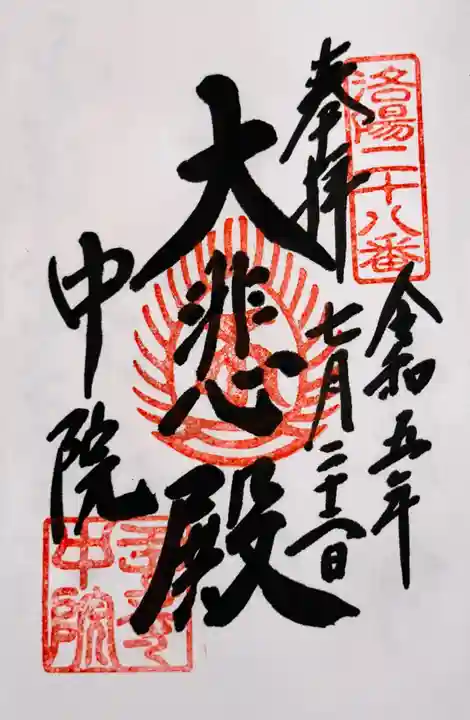 洛陽二十八番
奉拝
令和五年
七月二十日
大悲殿
中院
中院